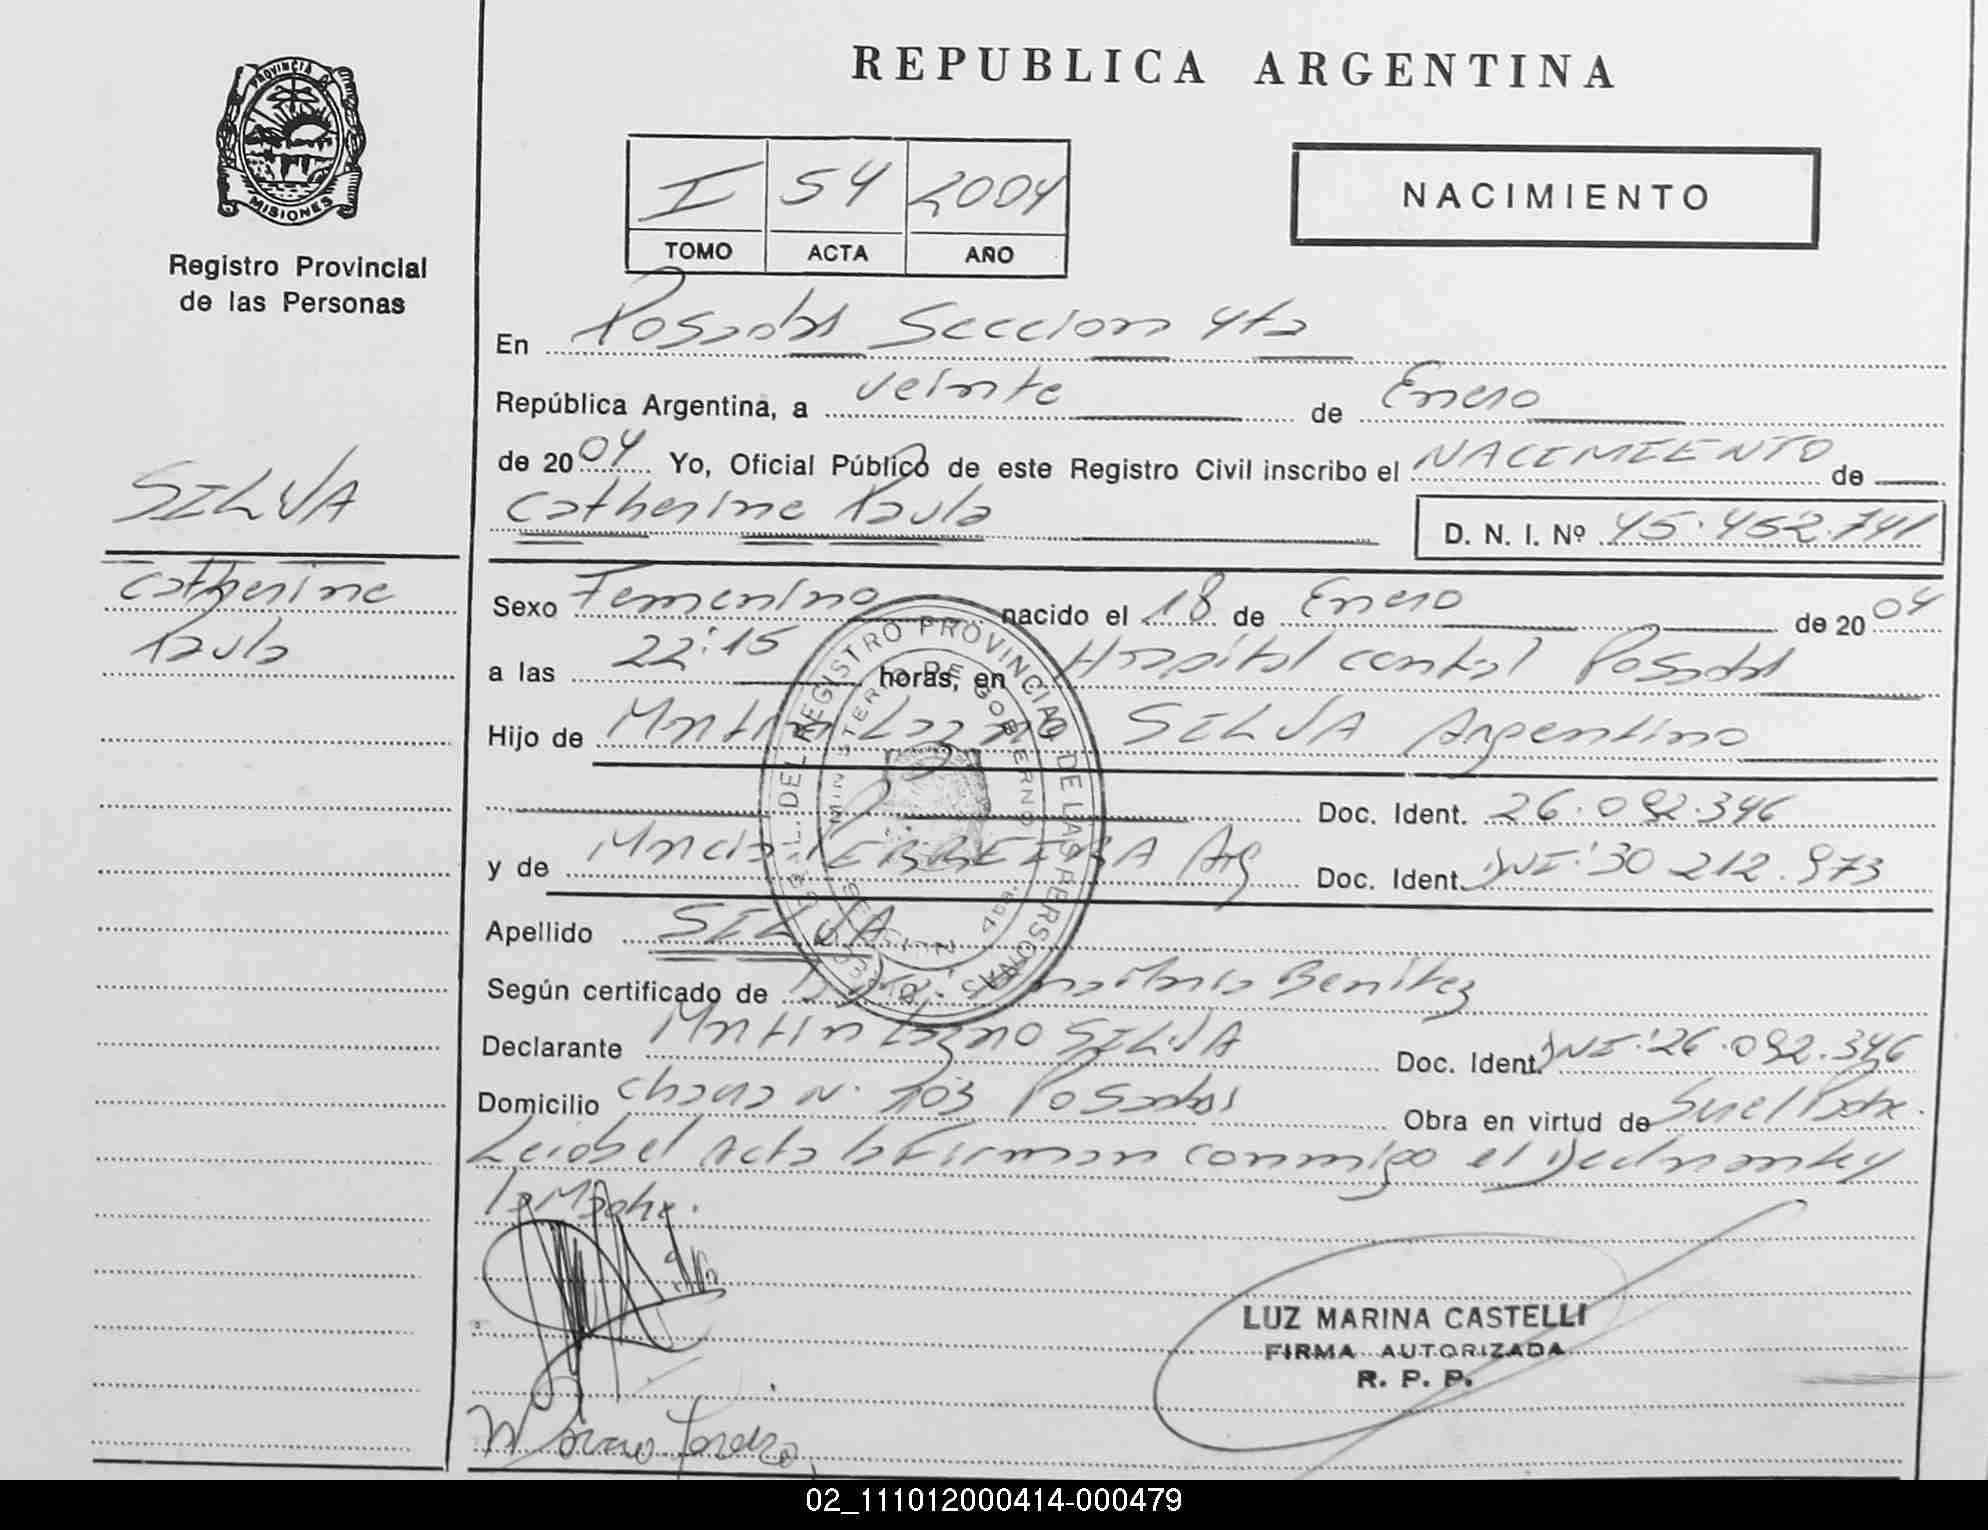 REPUBLICA ARGENTINA
PROVINCIA DE
MISIONES
Registro Provincial
de las Personas
I 54 2004
TOMO ACTA AÑO
NACIMIENTO
En Posadas Seccion 4ta
República Argentina, a veinte de Enero
de 2004 Yo, Oficial Público de este Registro Civil inscribo el NACIMIENTO de
Catherine Paula D. N. I. Nº 45.452.741
SILVA
Catherine
Paula
Sexo Femenino nacido el 18 de Enero de 2004
a las 22:15 horas, en Hospital central Posadas
Hijo de Martin SILVA Argentino
Doc. Ident. 26.092.346
y de Maria Arg Doc. Ident. DNI: 30 212.973
Apellido SILVA
Según certificado de Benitez
Declarante Martin SILVA Doc. Ident. DNI: 26.092.346
Domicilio N. 703 Posadas Obra en virtud de Ser el Padre.
Leida el Acta la Firman conmigo el Declarante y
la Madre.
DEL REGISTRO PROVINCIAL DE LAS PERSONAS
MINISTERIO DE GOBIERNO
LUZ MARINA CASTELLI
FIRMA AUTORIZADA
R. P. P.
02_111012000414-000479